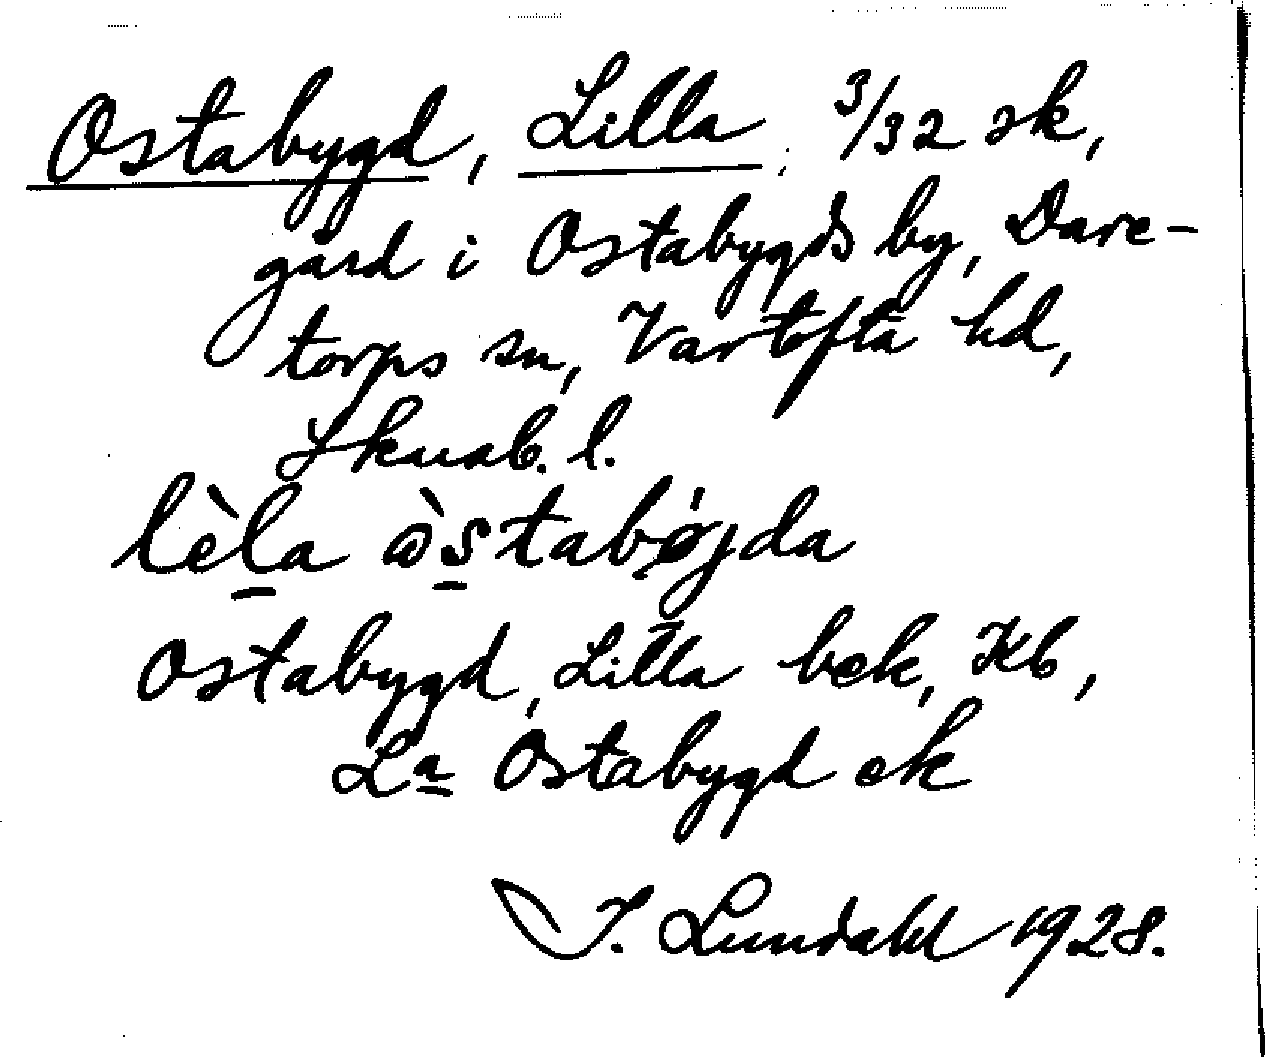 Ostabygd, Lilla, 3/32 sk,
gård i Ostabygds by, Dare-
torps sn, Vartofta hd,
Skarab. l.
lèḻa ὼs̱tabǿjda
Ostabygd, Lilla bek, Kb,
La Ostabygd ek
I. Lundahl 1928.